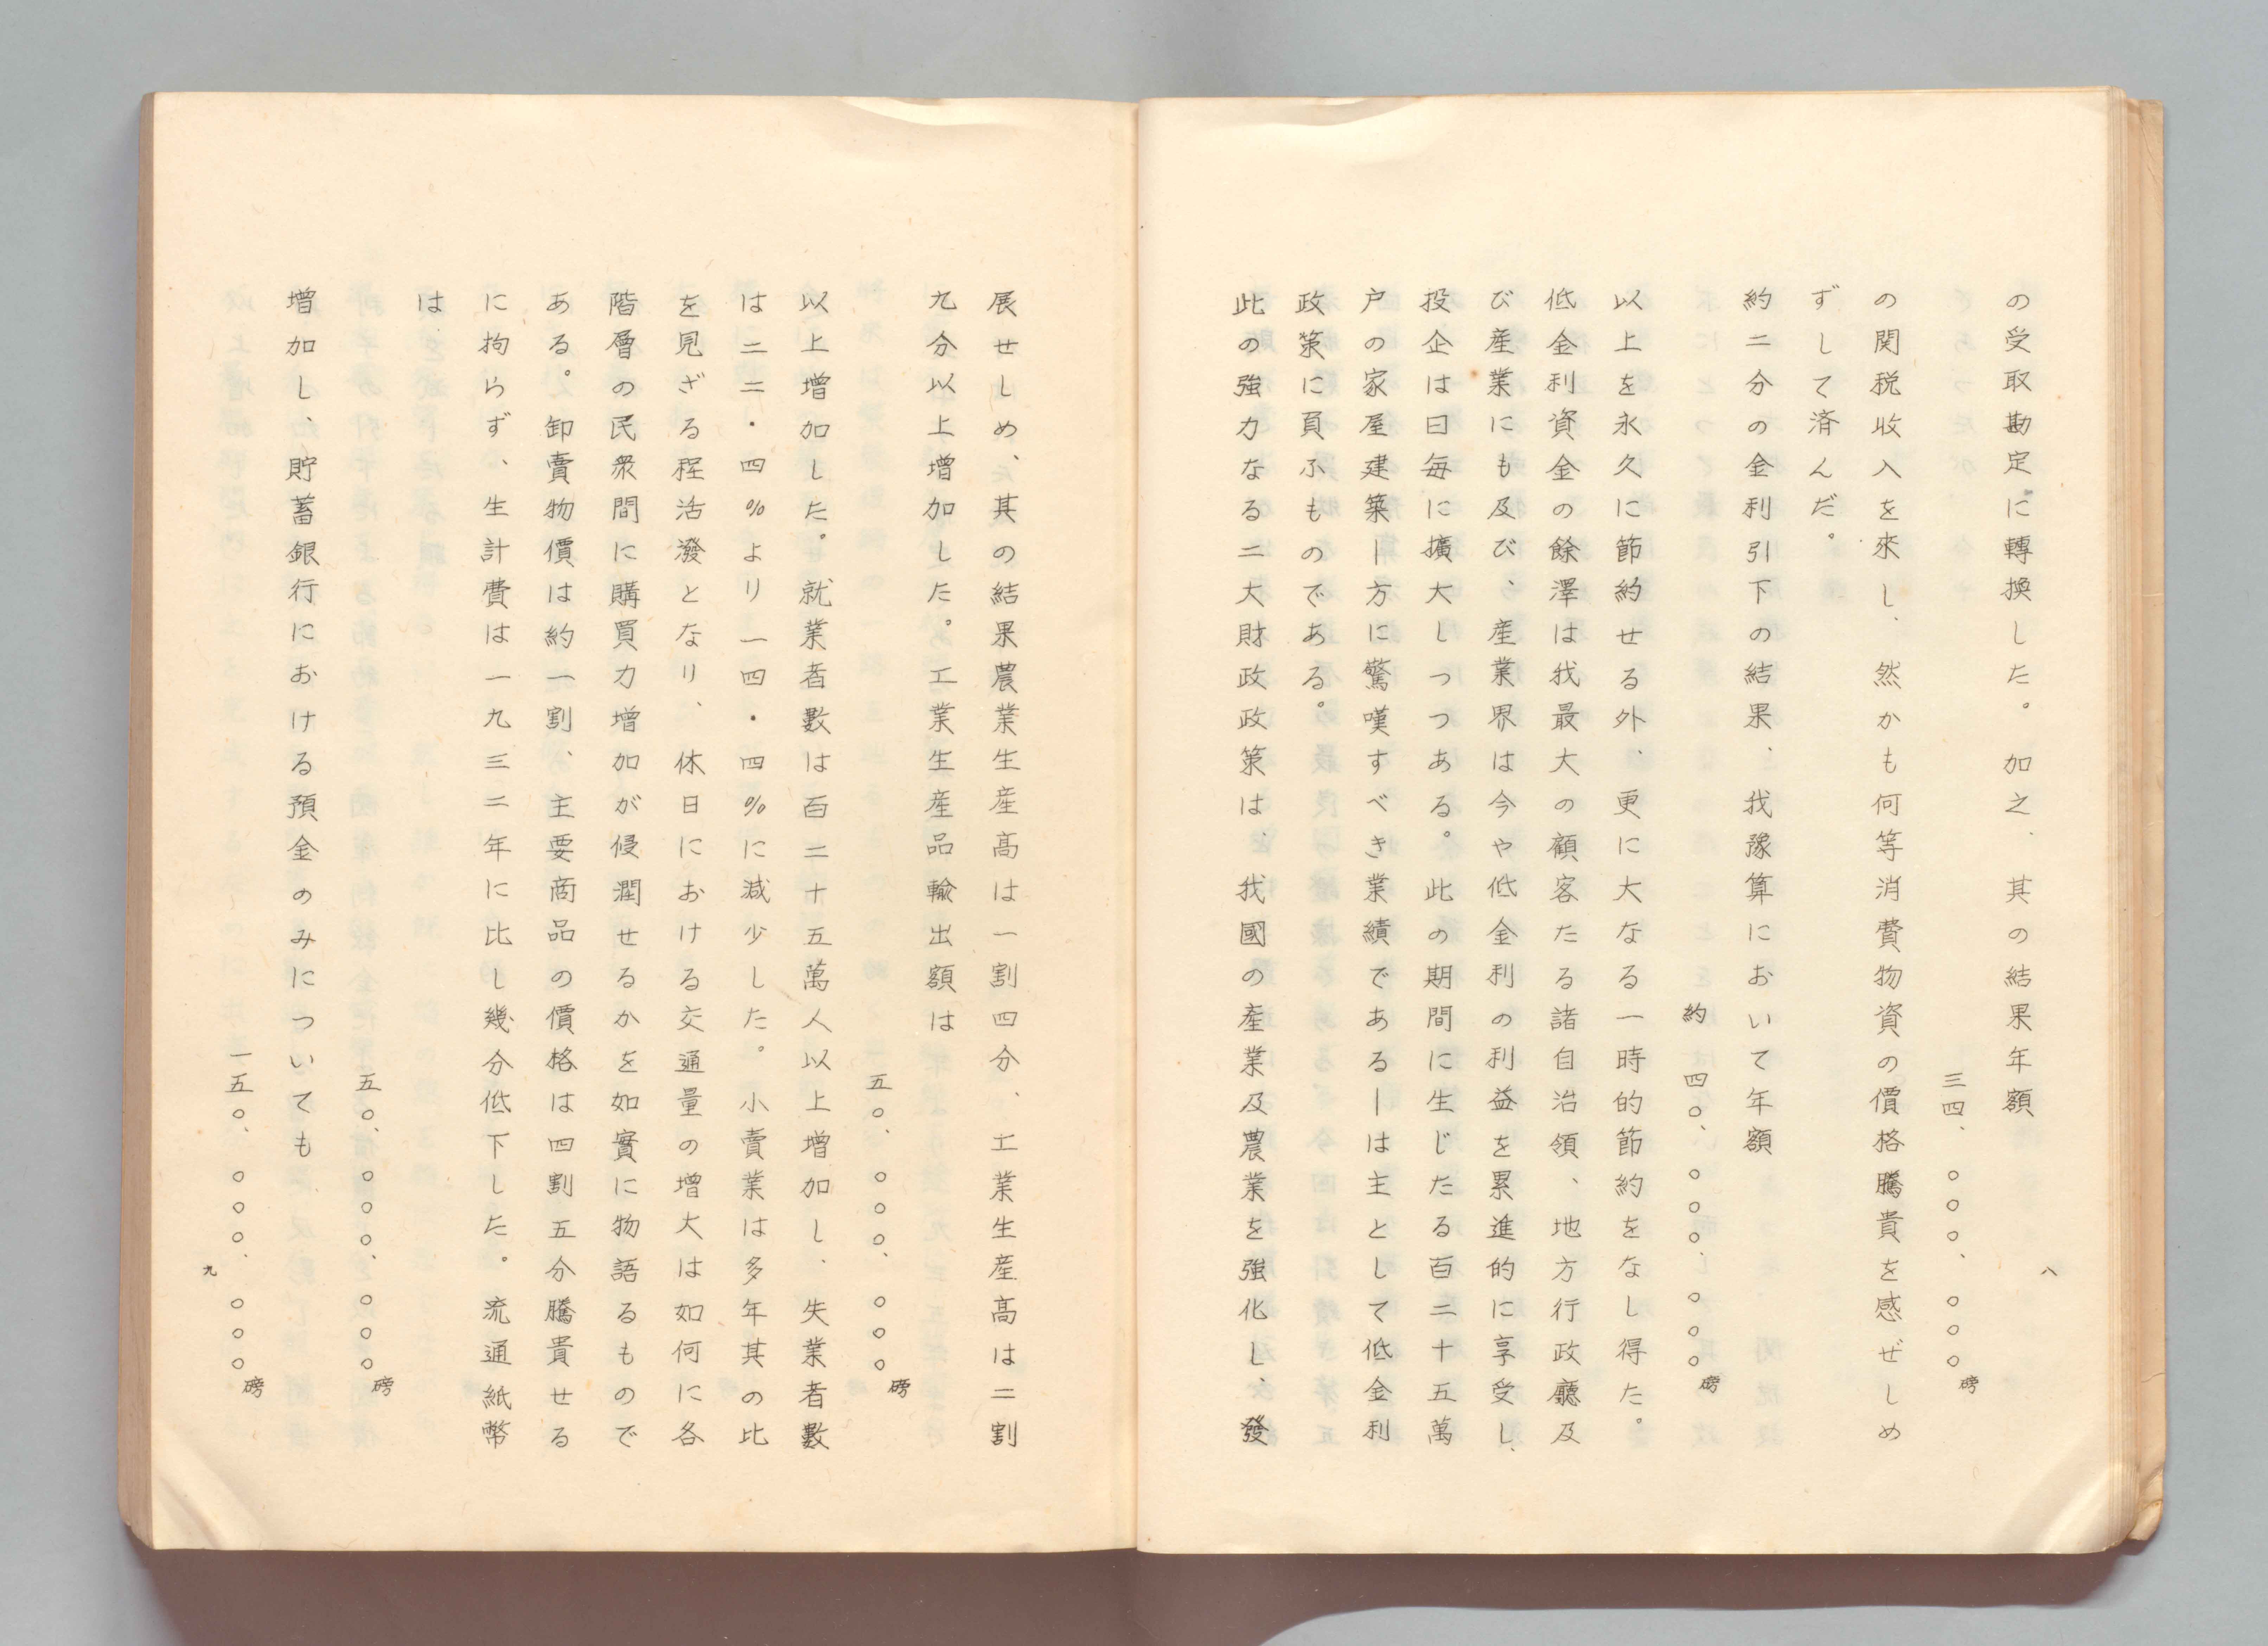 八
の受取勘定に轉換した。加之、其の結果年額
三四、〇〇〇、〇〇〇磅
の関税收入を來し、然かも何等消費物資の價格騰貴を感ぜしめ
ずして済んだ。
約二分の金利引下の結果、我豫算において年額
約四〇、〇〇〇、〇〇〇磅
以上を永久に節約せる外、更に大なる一時的節約をなし得た。
低金利資金の餘澤は我最大の顧客たる諸自治領、地方行政廳及
び産業にも及び、産業界は今や低金利の利益を累進的に享受し、
投企は日每に擴大しつつある。此の期間に生じたる百二十五萬
户の家屋建築ー方に驚嘆すべき業績であるーは主として低金利
政策に負ふものである。
此の強力なる二大財政政策は、我國の産業及農業を強化し、發
展せしめ、其の結果農業生産高は一割四分、工業生産高は二割
九分以上增加した。工業生産品輸出額は
五〇、〇〇〇、〇〇〇磅
以上增加した。就業者數は百二十五萬人以上增加し、失業者數
は二二・四％より一四・四％に減少した。小賣業は多年其の比
を見ざる程活潑となり、休日における交通量の增大は如何に各
階層の民衆間に購買力增加が侵潤せるかを如實に物語るもので
ある。卸賣物價は約一割、主要商品の價格は四割五分騰貴せる
に拘らず、生計費は一九三二年に比し幾分低下した。流通紙幣
は
五〇、〇〇〇、〇〇〇磅
增加し、貯蓄銀行における預金のみについても
一五〇、〇〇〇、〇〇〇磅
九